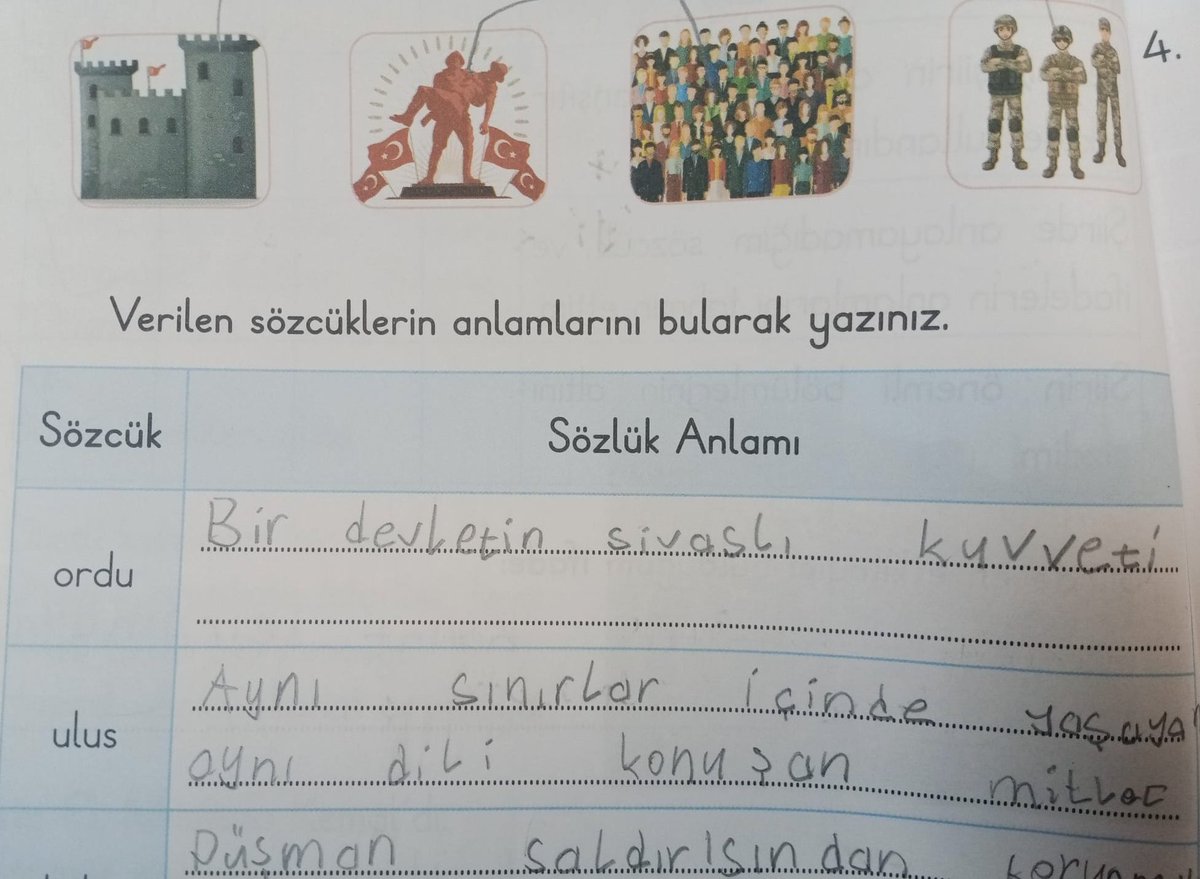 4.
Verilen sözcüklerin anlamlarını bularak yazınız.
Sözcük
Sözlük Anlamı
ordu
Bir devletin sivaslı kuvveti
ulus
Aynı sınırlar içinde yaşaya
aynı dili konuşan millet
Düşman saldırısından